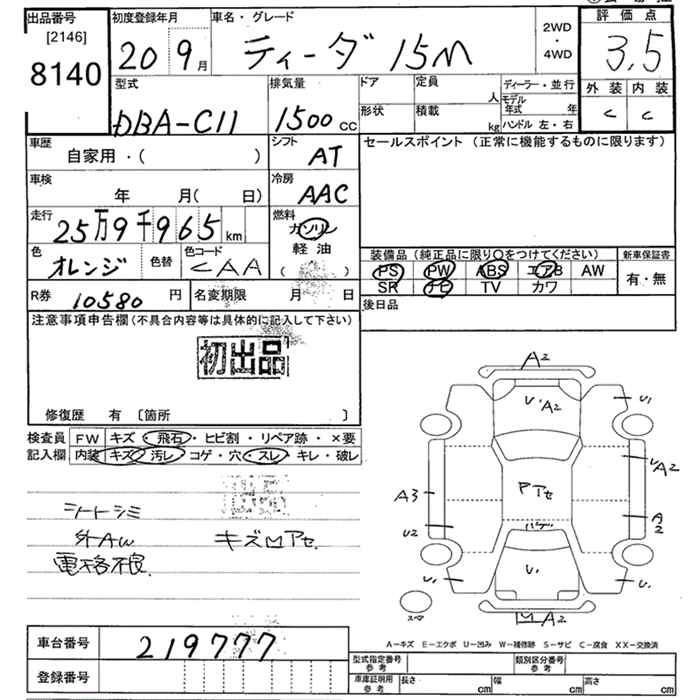 出品番号
[2146]
8140
初度登録年月
20 9月
車名・グレード
ティーダ 15M
2WD
・
4WD
評価点
3.5
外装 内装
C C
型式
DBA-C11
排気量
1500 CC
ドア
形状
定員
人
積載
kg
ディーラー・並行
モデル年式 年
ハンドル 左・右
車歴
自家用・( )
シフト
AT
車検
年 月( 日)
冷房
AAC
走行
25万9千965 km
燃料
ガソリン
軽油
( )
色
オレンジ
色替
色コード
CAA
R券
10580 円
名変期限 月 日
セールスポイント (正常に機能するものに限ります)
装備品 (純正品に限り○をつけてください)
PS PW ABS エアB AW
SR ナビ TV カワ
新車保証書
有・無
後日品
注意事項申告欄 (不具合内容等は具体的に記入して下さい)
初出品
修復歴 有 〔箇所 〕
検査員
記入欄
FW キズ・飛石・ヒビ割・リペア跡・×要
内装 キズ・汚レ・コゲ・穴・スレ・キレ・破レ
シートシミ
外AW キズロアセ
電格不良
A2
U・A2
U1
UA2
A3
Pアセ
A2
U2
U1
U1
U1
A2
A−キズ E−エクボ U−凹み W−補修跡 S−サビ C−腐食 XX−交換済
車台番号
219777
登録番号
型式指定番号
参考
類別区分番号
参考
車庫証明用
参考
長さ cm
幅 cm
高さ cm